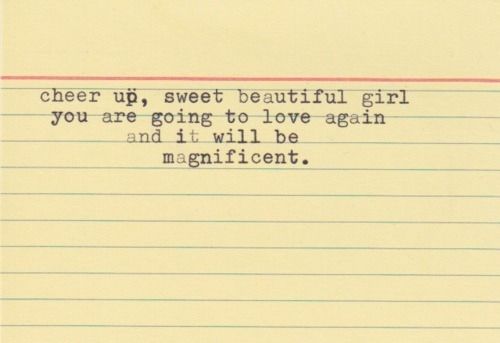 cheer up, sweet beautiful girl
you are going to love again
and it will be
magnificent.